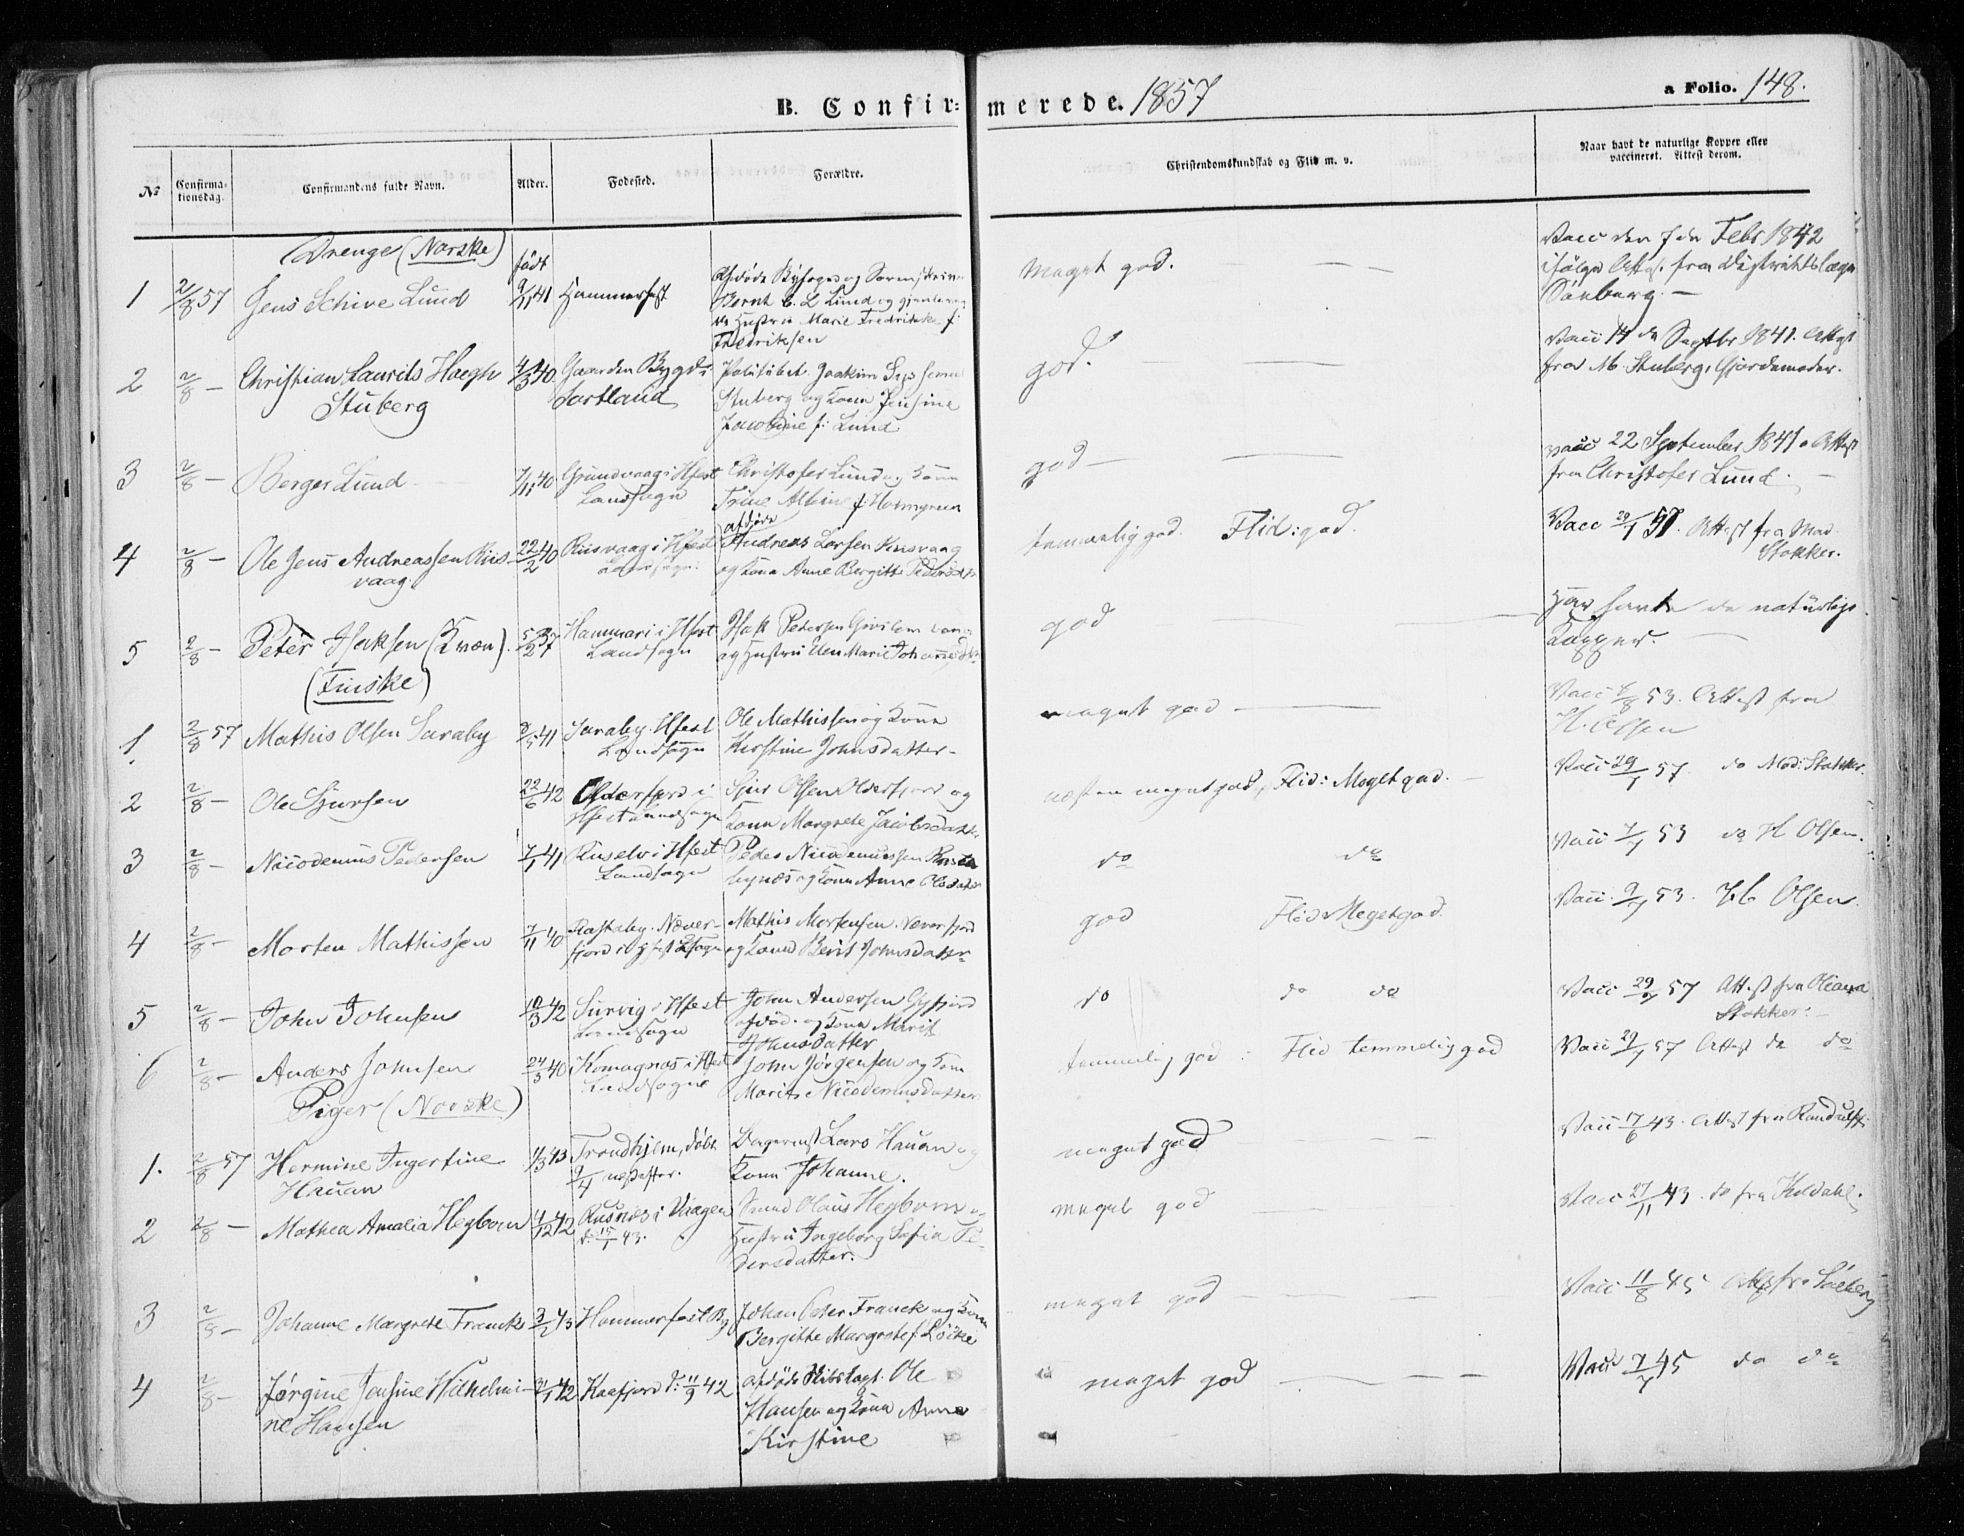 B. Confir=
merede. 1857
a Folio. 148.
№
Confirma-
tionsdag.
Confirmandens fulde Navn.
Alder.
Fødested.
Forældre.
Christendomskundskab og Flid m. v.
Naar havt de naturlige Kopper eller
vaccineret. Attest derom.
Drenge (Norske)
født
1 2/8 57 Jens Schive Lund 9/11 41 Hammerfest
Afdøde Byfoged og Sorenskriver
Bernt Lund og
Hustru Marie Fredrikke f:
Fredriksen
Meget god.
Vacc den 7de Febr 1842
ifølge Attest fra Distriktslæge
2 2/8 — Christian Laurits Hoegh
Stuberg
4/3 40 Gaarden Bygd i
Sortland
Politibet. Joakim
Stuberg og Kone Jensine
Jacobine f: Lund
god.
Vacc 14 de Septbr 1841. Attest
fra M. Stuberg, Gjordemoder.
3 2/8 — Berger Lund 7/11 40 Grundvaag i Hfest
Landsogn
Christofer Lund og Kone
Trine Albine f: Holmgreen
god
Vacc 22 September 1841. Attest
fra Christofer Lund.
4 2/8 — Ole Jens Andreassen Riis-
vaag
22/2 40 Riisvaag i Hfest
Landsogn
afdøde
Andreas Larsen Riisvaag
og Kone Anne Bergitte Pedersdtr
temmelig god. Flid: god.
Vacc 29/1 57. Attest fra Mad.
Stokker.
5 2/8 — Peter Isaksen (Kvæn). 5/2 37 Hammari i Hfest
Landsogn
Isak Pedersen
og Hustru Elen Marie
god
Har havt de naturlige
Kopper
(Finske)
1. 2/8 57 Mathis Olsen Saraby 41 Saraby Hfest
Landsogn
Ole Mathissen og Kone
Kirstine Johnsdatter
meget god
Vacc 53. Attest fra
H. Olsen
2 2/8 — Ole Sjursen 22/6 42 Olderfjord i
Hfest Landsogn
Sjur Olsen Olderfjord og
Kone Margrete Jacobsdatter
næsten meget god, Flid: Meget god.
Vacc 29/1 57 do Mad: Stokker.
3 2/8 — Nicodemus Pedersen 7/1 41 Russelv i Hfest
Landsogn
Peder Nicodemussen
og Kone Anne Olsdatter
do do
Vacc 7/7 53 do H Olsen.
4 2/8 — Morten Mathissen 7/11 40 Rastaby. Næver-
fjord i Hfest Lsogn
Mathis Mortensen. Neverfjord
og Kone Berit Johnsdatter
god Flid Meget god.
Vacc 9/7 53. Olsen.
5 2/8 — John Johnsen 42 Survig i Hfest
Landsogn
John Andersen
afdød. og Kone Marit
Johnsdatter
do do do
Vacc 29/ 57 Attest fra Oleana
Stokker.
6 2/8 — Anders Johnsen 24/5 40 Komagnæs i Hfest
Landsogn
John Jørgensen og Kone
Marit Nicodemusdatter
temmelig god Flid temmelig god
Vacc 29/ 57 Attest do do
Piger (Norske)
1. 2/8 57 Hermine Ingertine
Hauan
1/3 43 Trondhjem, døbt
9/4 næstefter.
Bagermst Lars Hauan og
Kone Johanne.
meget god
Vacc 7/6 43. Attest fra Randulff.
2 2/8 — Mathea Amalia Hegbom 4/12 42 Rusnæs i Vaagen
d. 15/1 43.
Olaus Hegbom og
Hustru Ingeborg Sofia Pe-
dersdatter.
meget god
Vacc 27/11 43. do fra Koldahl.
3 2/8 — Johanne Margrete Franck 3/2 43 Hammerfest By
Johan Peter Franck og Kone
Bergitte Margrete f. Löcke
meget god
Vacc 11/8 45 Attest fra
4 2/8 — Jørgine Josine Wilhelmi-
ne Hansen
42 Kaafjord d: 11/9 42
afdøde Ole
Hansen og Kone Anne
Kirstine
meget god
Vacc 7/7 45 do do